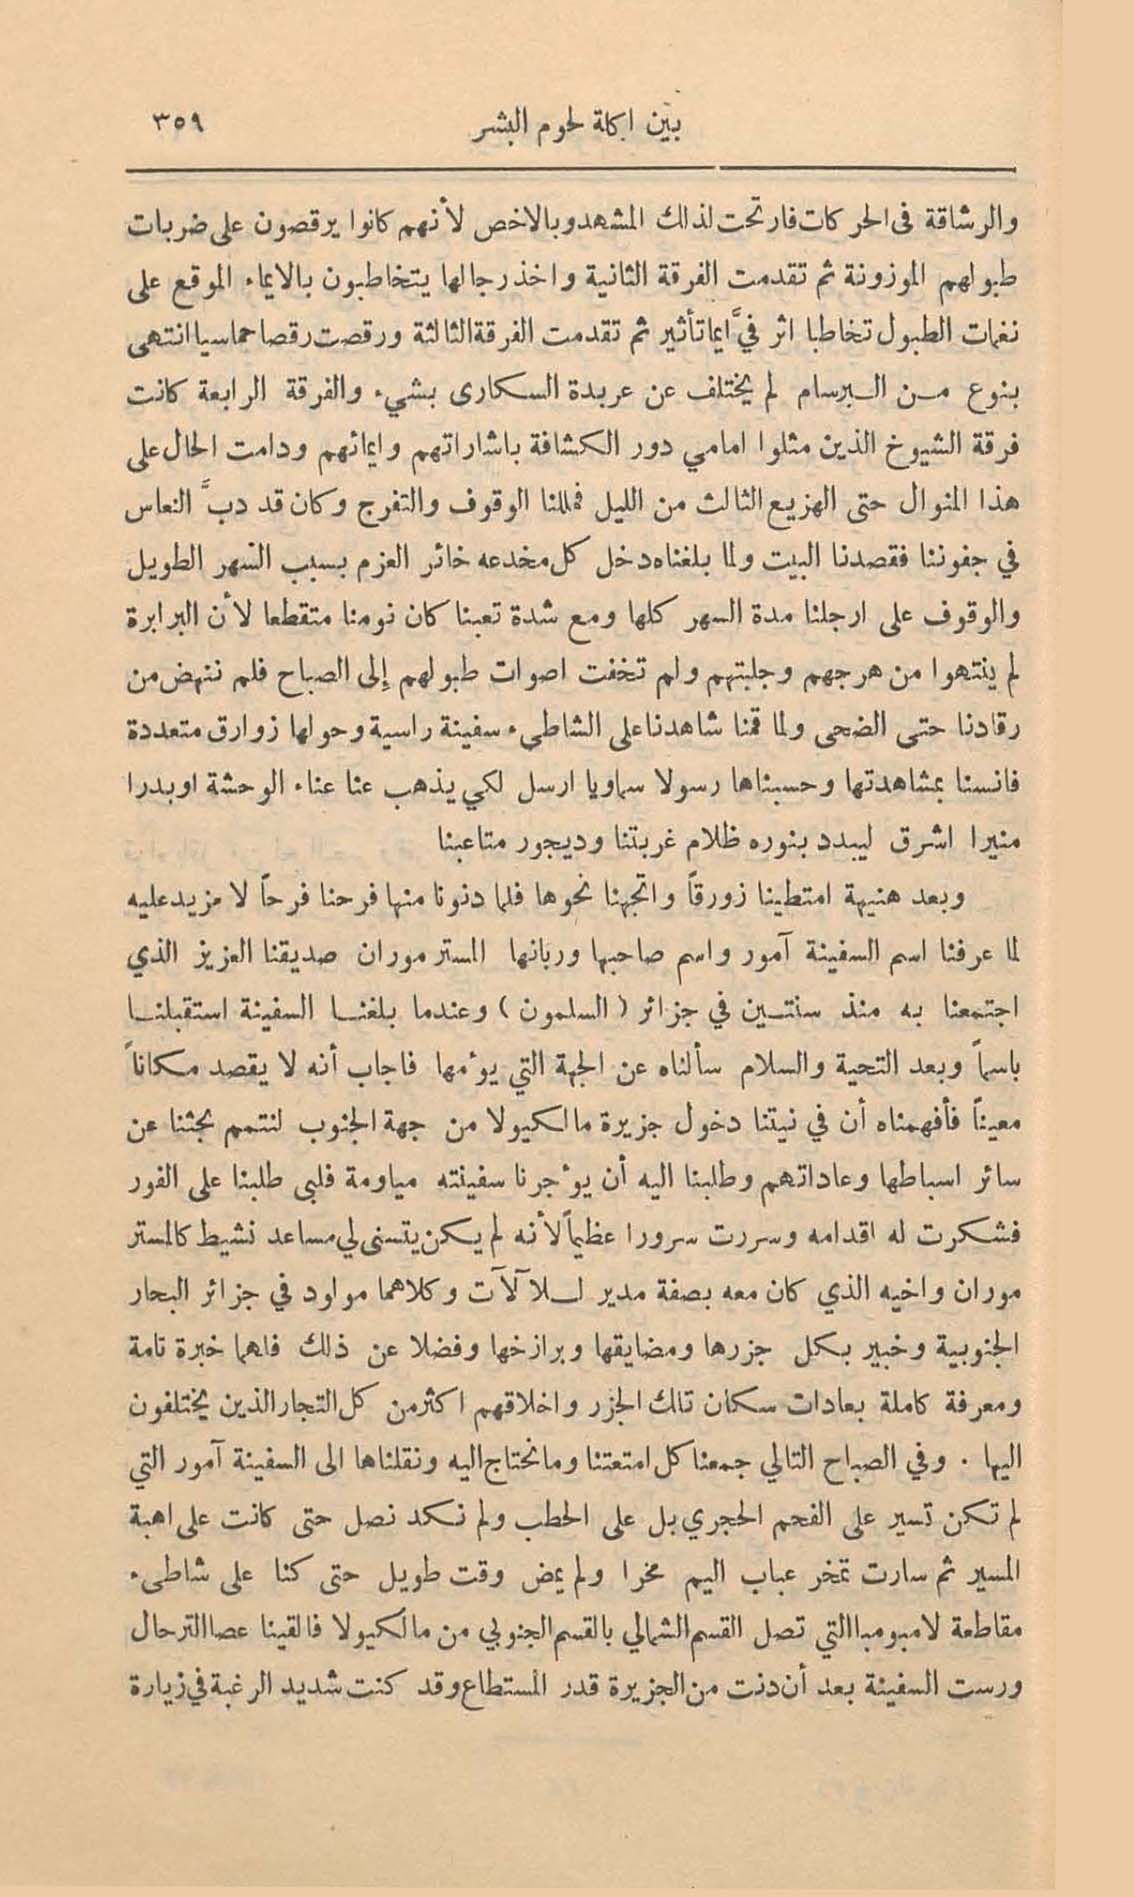 بين اكلة لحوم البشر ٣٥٩
والرشاقة فى الحركات فارتحت لذلك المشهد وبالاخص لأنهم كانوا يرقصون على ضربات
طبولهم الموزونة ثم تقدمت الفرقة الثانية واخذ رجالها يتخاطبون بالايماء الموقع على
نغمات الطبول تخاطبا اثر فيَّ ايما تأثير ثم تقدمت الفرقة الثالثة ورقصت رقصا حماسيا انتهى
بنوع من البرسام لم يختلف عن عربدة السكارى بشيء والفرقة الرابعة كانت
فرقة الشيوخ الذين مثلوا امامي دور الكشافة باشاراتهم وايمائهم ودامت الحال على
هذا المنوال حتى الهزيع الثالث من الليل فمللنا الوقوف والتفرج وكان قد دبَّ النعاس
في جفوننا فقصدنا البيت ولما بلغناه دخل كل مخدعه خائر العزم بسبب السهر الطويل
والوقوف على ارجلنا مدة السهر كلها ومع شدة تعبنا كان نومنا متقطعا لأن البرابرة
لم ينتهوا من هرجهم وجلبتهم ولم تخفت اصوات طبولهم إلى الصباح فلم ننهض من
رقادنا حتى الضحى ولما قمنا شاهدنا على الشاطىء سفينة راسية وحولها زوارق متعددة
فانسنا بمشاهدتها وحسبناها رسولا سماويا ارسل لكي يذهب عنا عناء الوحشة او بدرا
منيرا اشرق ليبدد بنوره ظلام غربتنا وديجور متاعبنا
وبعد هنيهة امتطينا زورقاً واتجهنا نحوها فلما دنونا منها فرحنا فرحاً لا مزيد عليه
لما عرفنا اسم السفينة آمور واسم صاحبها وربانها المستر موران صديقنا العزيز الذي
اجتمعنا به منذ سنتين في جزائر ( السلمون ) وعندما بلغنا السفينة استقبلنا
باسماً وبعد التحية والسلام سألناه عن الجهة التي يؤمها فاجاب أنه لا يقصد مكاناً
معيناً فأفهمناه أن في نيتنا دخول جزيرة مالكيولا من جهة الجنوب لنتمم بحثنا عن
سائر اسباطها وعاداتهم وطلبنا اليه أن يؤجرنا سفينته مياومة فلبى طلبنا على الفور
فشكرت له اقدامه وسررت سرورا عظيماً لأنه لم يكن يتسنى لي مساعد نشيط كالمستر
موران واخيه الذي كان معه بصفة مدير للآلآت وكلاهما مولود في جزائر البحار
الجنوبية وخبير بكل جزرها ومضايقها وبرازخها وفضلا عن ذلك فلهما خبرة تامة
ومعرفة كاملة بعادات سكان تلك الجزر واخلاقهم اكثر من كل التجار الذين يختلفون
اليها . وفي الصباح التالي جمعنا كل امتعتنا وما نحتاج اليه ونقلناها الى السفينة آمور التي
لم تكن تسير على الفحم الحجري بل على الحطب ولم نكد نصل حتى كانت على اهبة
المسير ثم سارت تمخر عباب اليم مخرا ولم يمض وقت طويل حتى كنا على شاطىء
مقاطعة لامبومبا التي تصل القسم الشمالي بالقسم الجنوبي من مالكيولا فالقينا عصا الترحال
ورست السفينة بعد أن دنت من الجزيرة قدر المستطاع وقد كنت شديد الرغبة في زيارة